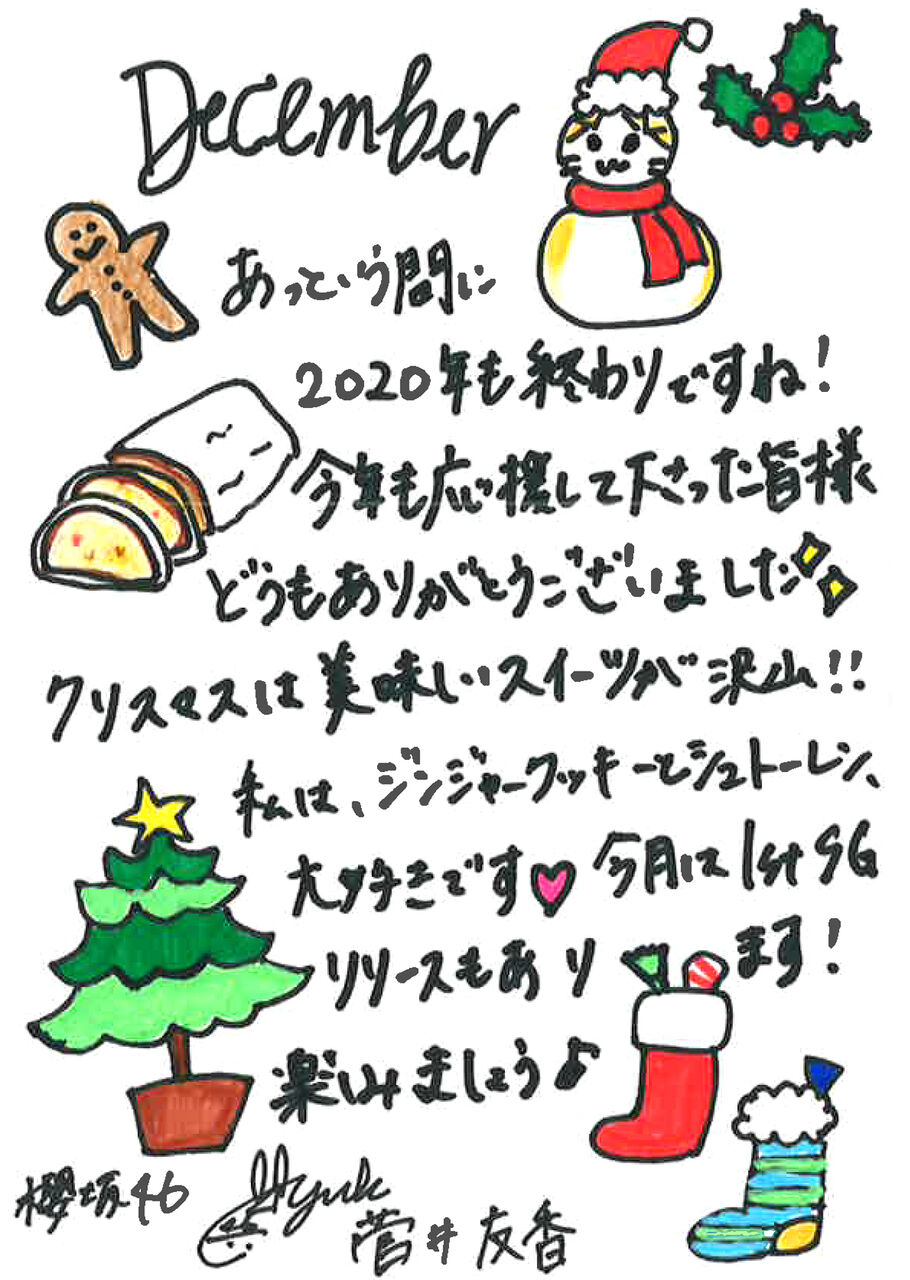 December
あっという間に
2020年も終わりですね!
今年も応援して下さった皆様
どうもありがとうございました
クリスマスは美味しいスイーツが沢山!!
私は、ジンジャークッキーとシュトーレン、
大好きです♥ 今月は1st SG
リリースもあります!
楽しみましょう♪
櫻坂46 Yuk
菅井友香